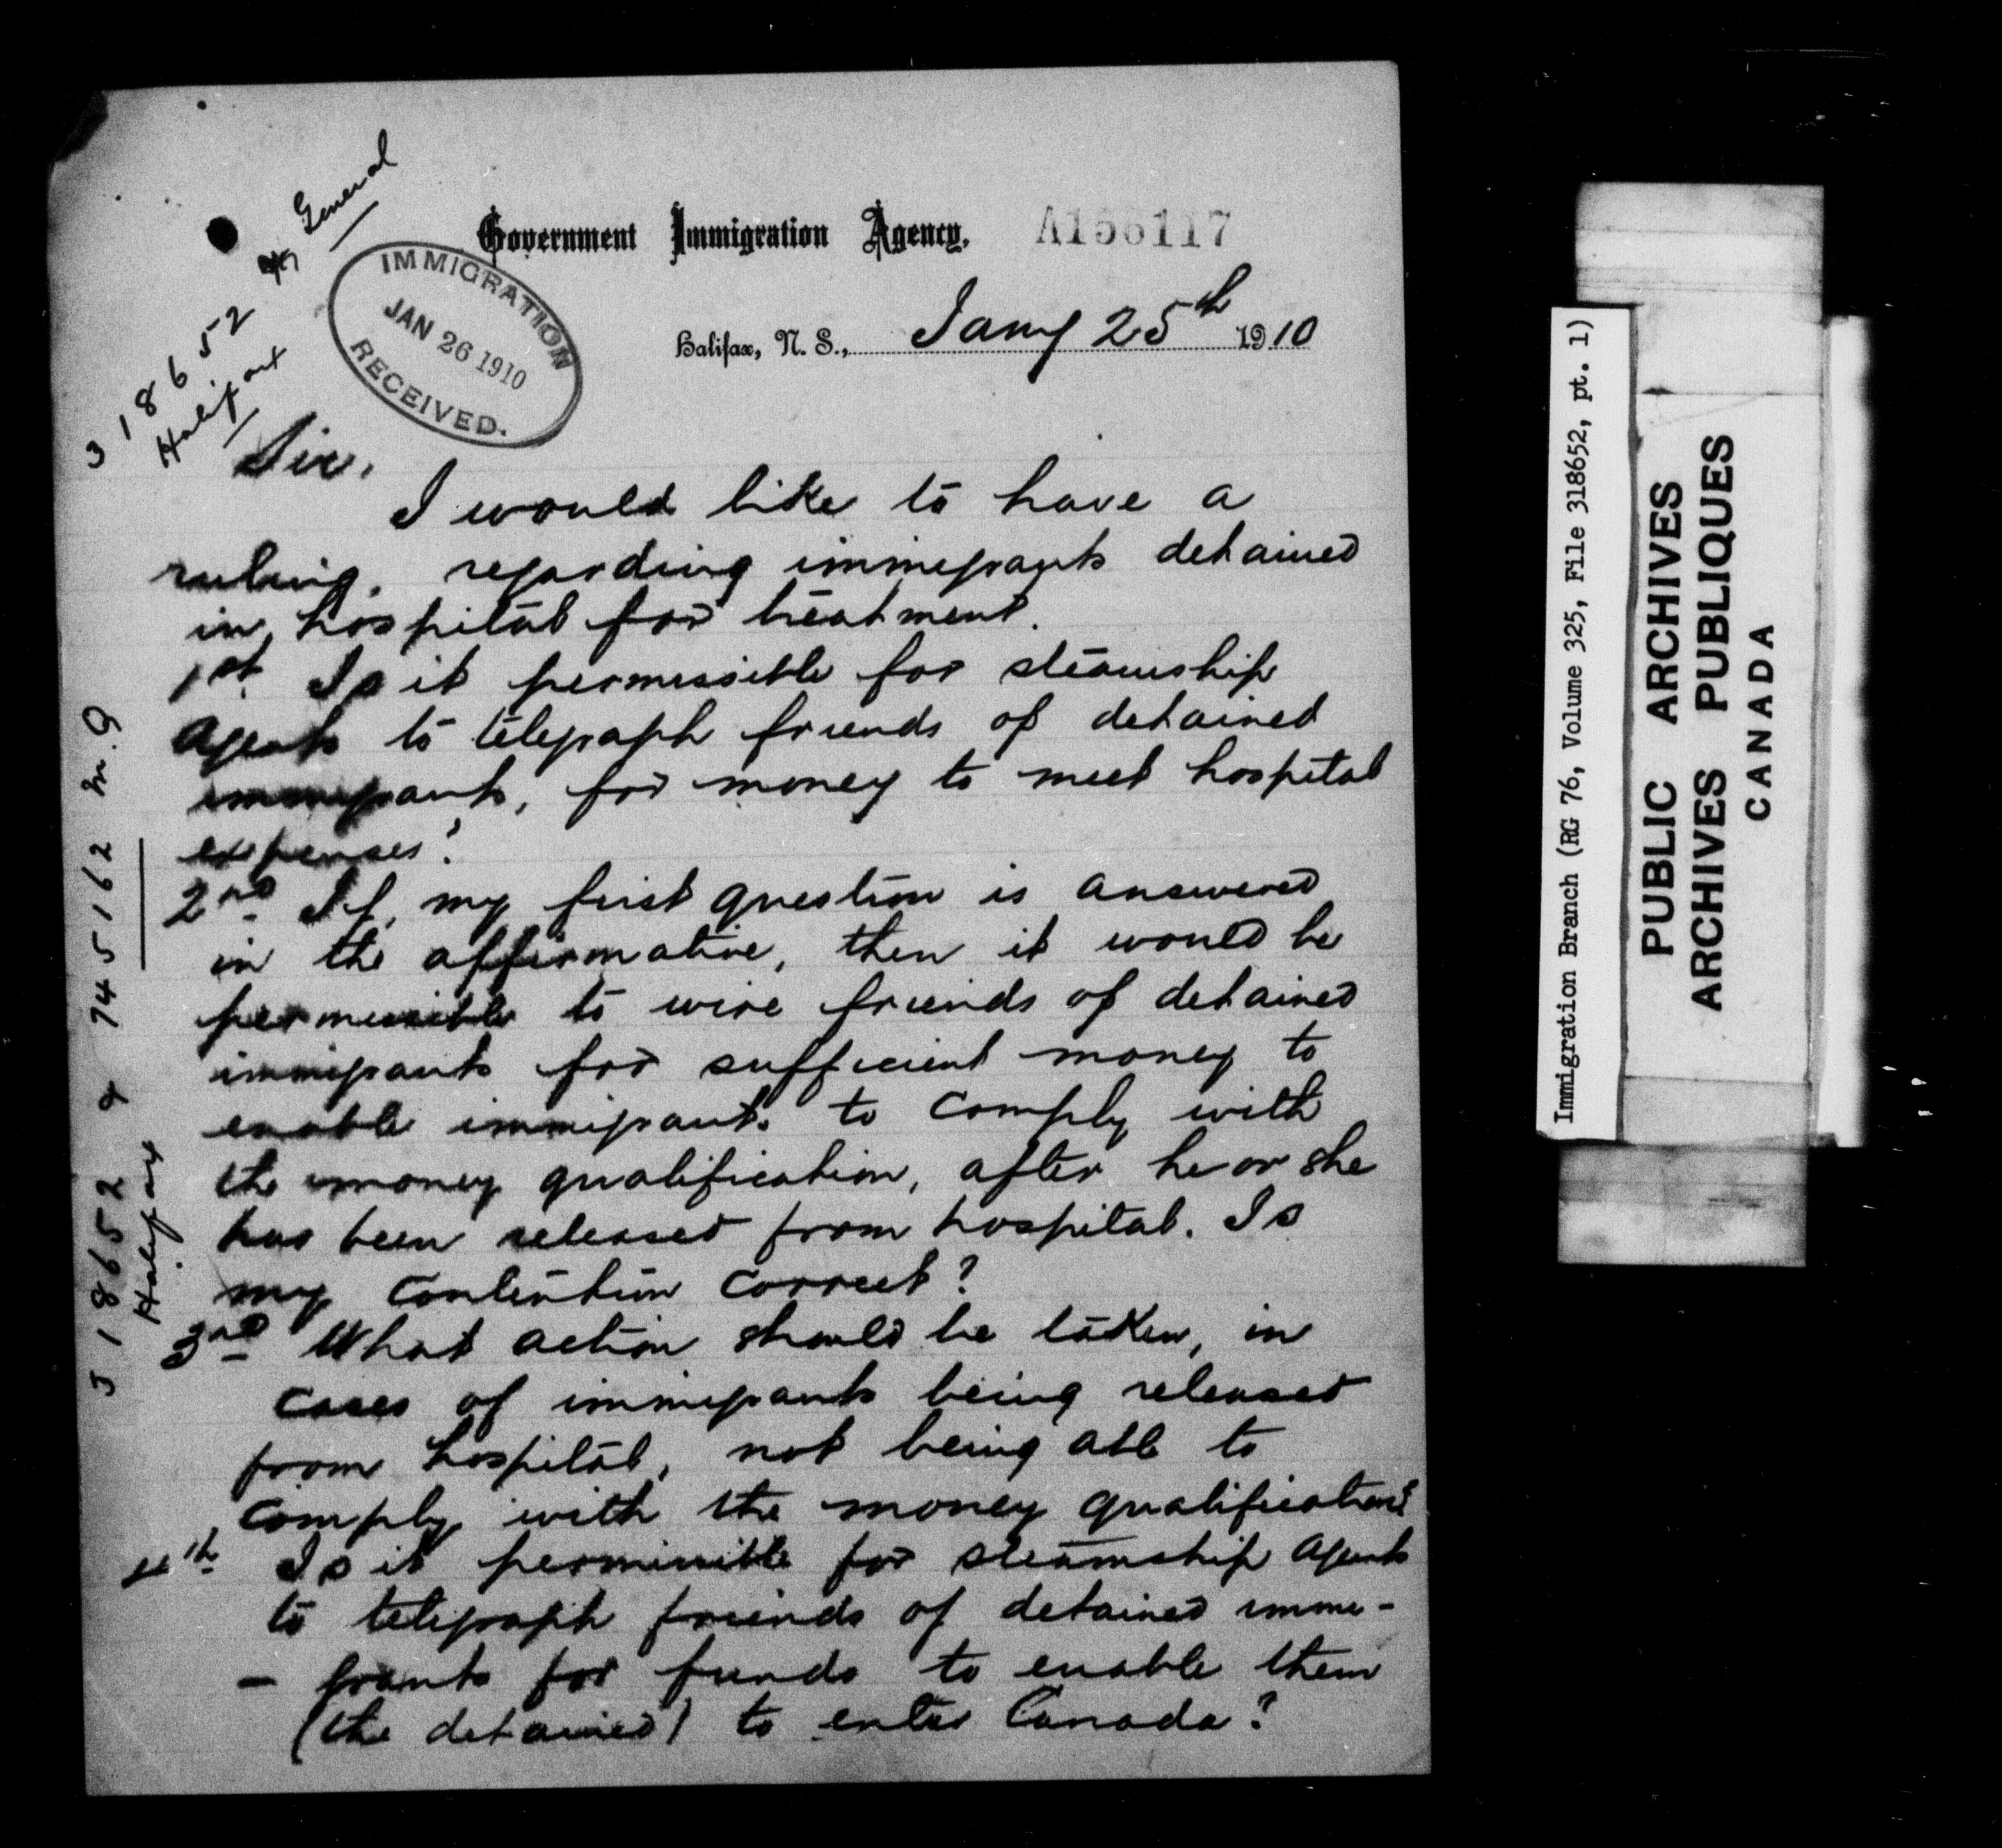 318652 General
Halifax
Government Immigration Agency.
A156117
IMMIGRATION
JAN 26 1910
RECEIVED.
Halifax, N. S., Jany 25th 1910
Sir,
I would like to have a
ruling, regarding immigrants detained
in hospital for treatment.
1st. Is it permissible for steamship
Agents to telegraph friends of detained
immigrants, for money to meet hospital
expenses?
2nd If, my first question is answered
in the affirmative, then it would be
permissible to wire friends of detained
immigrants for sufficient money to
enable immigrants to comply with
the money qualification, after he or she
has been released from hospital. Is
my contention correct?
3rd What action should be taken, in
cases of immigrants being released
from hospital, not being able to
comply with the money qualification?
4th Is it permissible for steamship Agents
to telegraph friends of detained immi-
- grants for funds to enable them
(the detained) to enter Canada?
318652 & 745162 M.G
Halifax
Immigration Branch (RG 76, Volume 325, File 318652, pt. 1)
PUBLIC ARCHIVES
ARCHIVES PUBLIQUES
CANADA